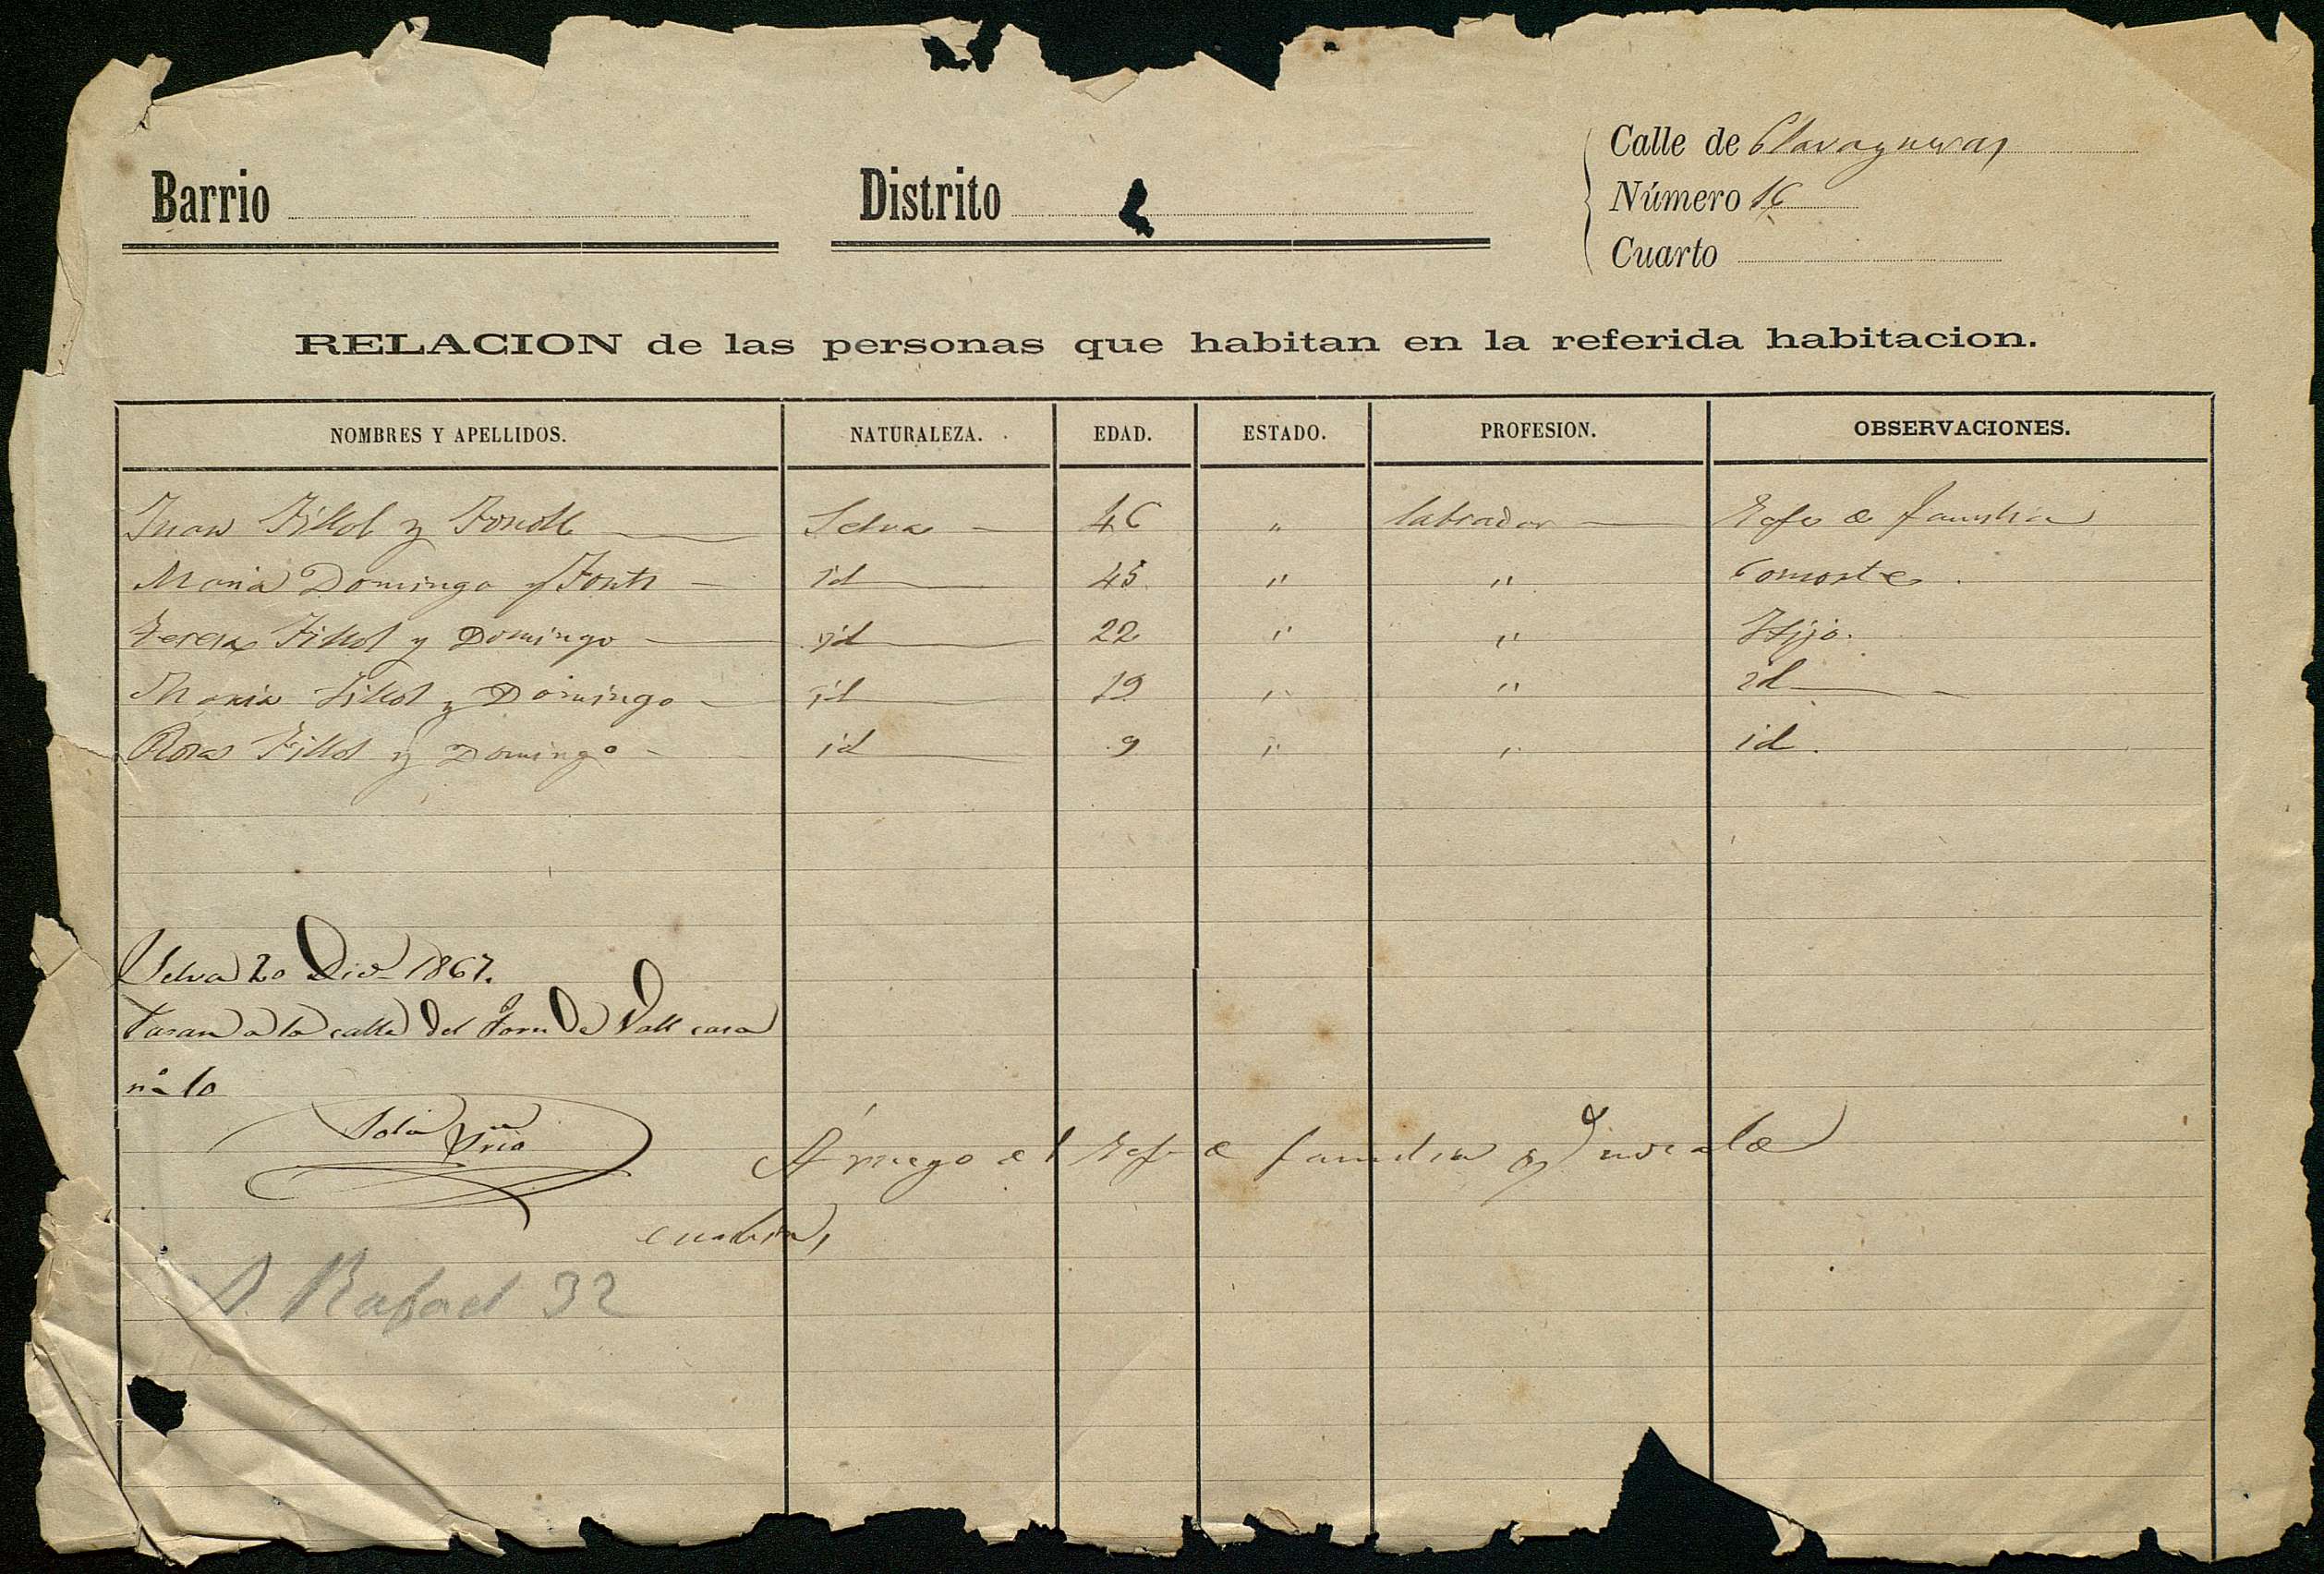 Calle de Clavagueras
Barrio Distrito Número 16
Cuarto
RELACION de las personas que habitan en la referida habitacion.
NOMBRES Y APELLIDOS. NATURALEZA. EDAD. ESTADO. PROFESION. OBSERVACIONES.
Juan Fillol y Selva 46 " labrador Gefe de familia
Maria Domingo y Fonts id 45 " " Consorte
Teresa Fillol y Domingo id 22 " " Hija.
Maria Fillol y Domingo id 19 " " id
Rosa Fillol y Domingo id 9 " " id.
Selva 20 Dic 1867.
Pasan a la calle del Forn de Vall casa
nº 10
Solá Srio
A ruego del Gefe de familia
S. Rafael 32